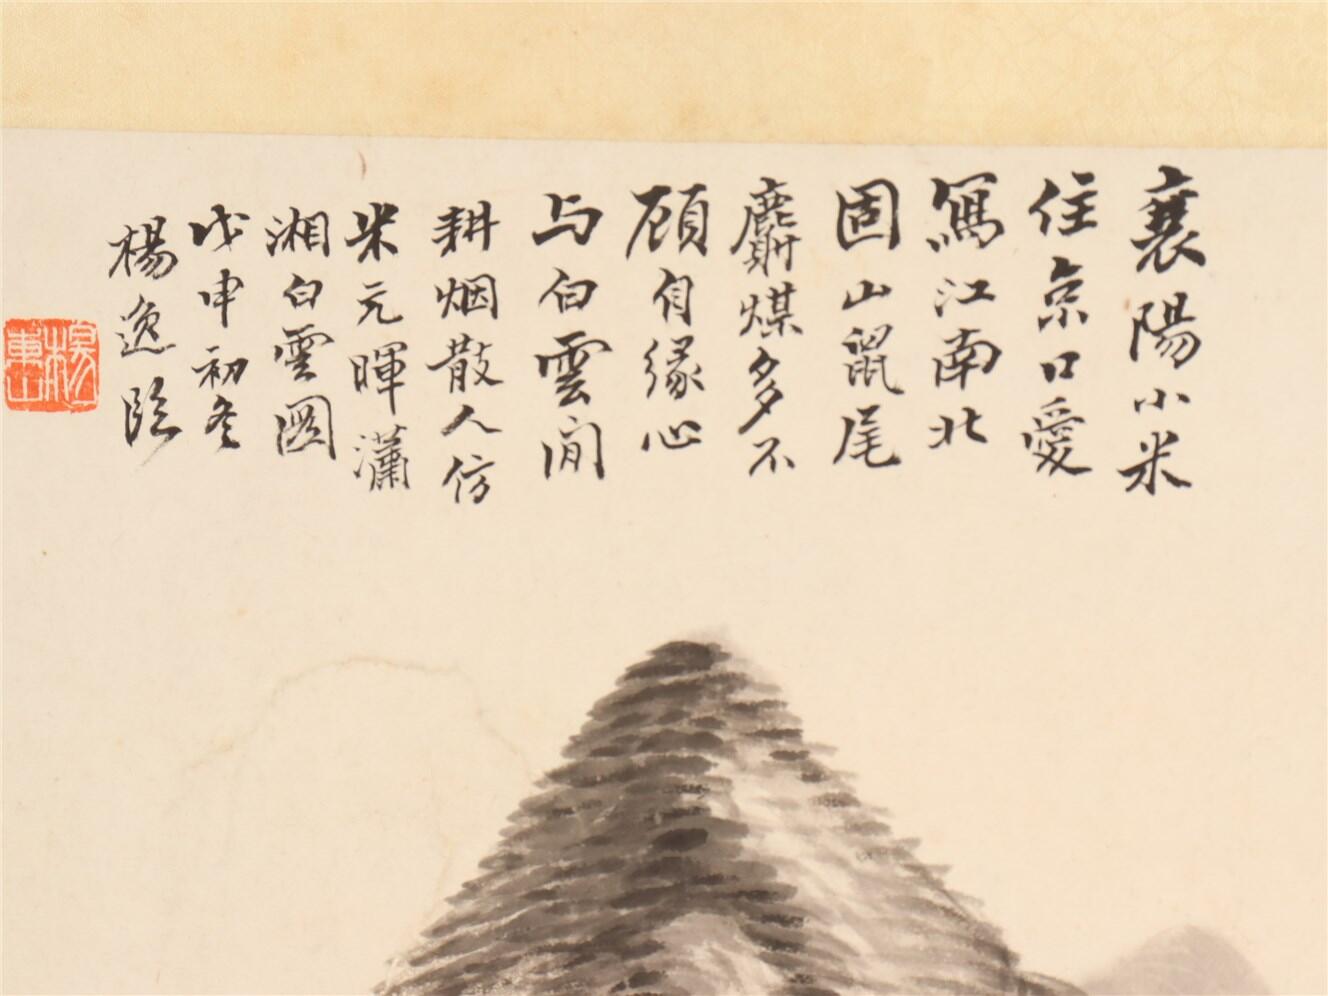 襄陽小米
住京口愛
寫江南北
固山鼠尾
麝煤多不
顧自緣心
与白雲閒
耕烟散人仿
米元暉瀟
湘白雲圖
戊申初冬
楊逸臨